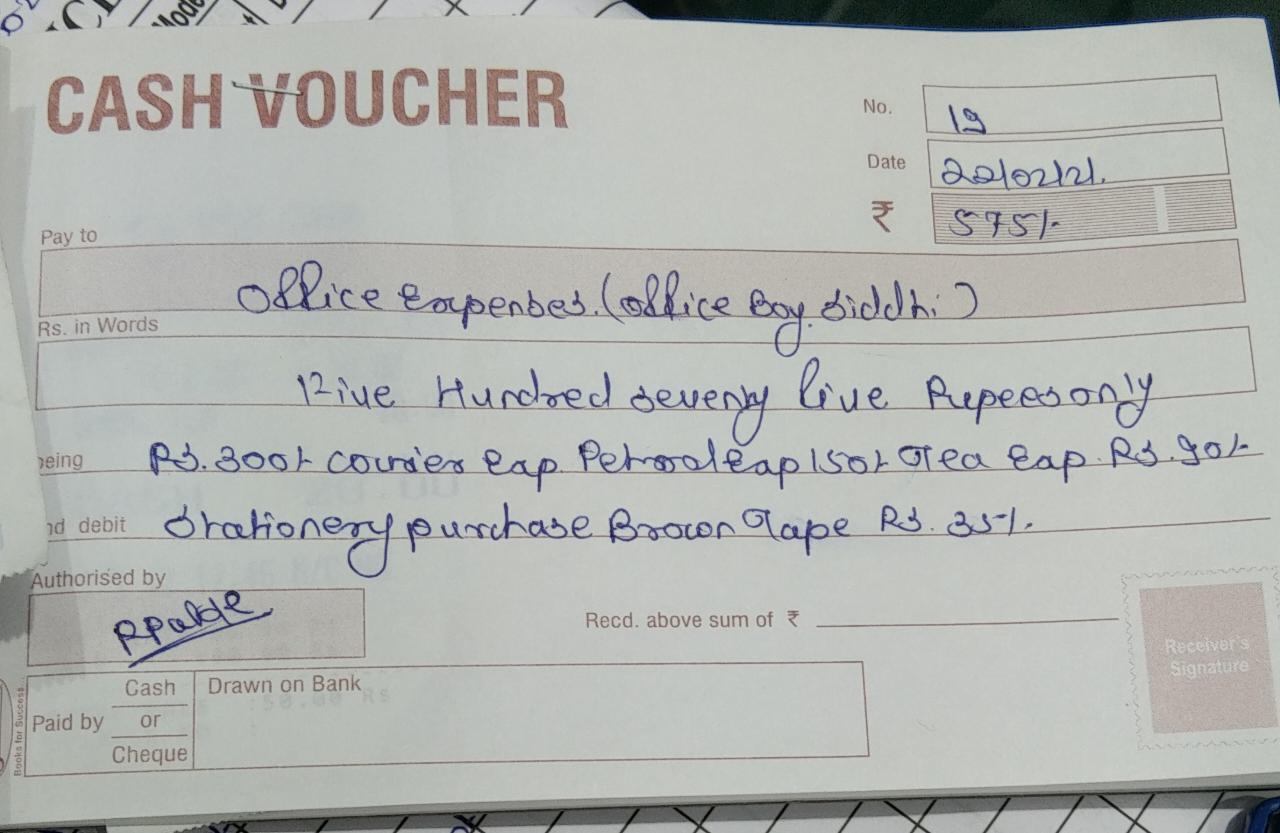 CASH VOUCHER
No. 19
Date 22/02/21.
₹ 575/-
Pay to
Office Expenses. (office Boy. Siddhi)
Rs. in Words
Five Hundred seventy five Rupees only
being Rs. 300/- courier Exp. Petrol Exp 150/- Tea Exp. Rs. 90/-
nd debit Stationery purchase Brown Tape Rs. 35/-.
Authorised by
Recd. above sum of ₹
Receiver's
Signature
Paid by Cash or Cheque
Drawn on Bank
Books for Success...